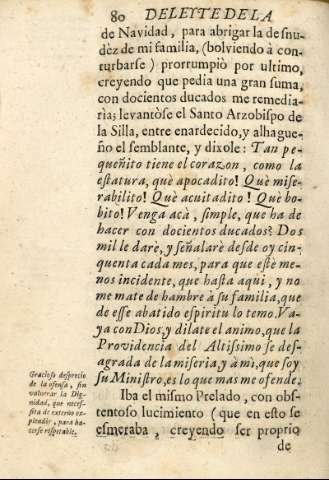 80 DELEYTE DE LA
de Navidad, para abrigar la desnu-
dèz de mi familia, (bolviendo à con-
turbarse) prorrumpiò por ultimo,
creyendo que pedia una gran suma,
con docientos ducados me remedia-
ria; levantòse el Santo Arzobispo de
la Silla, entre enardecido, y alhague-
ño el semblante, y dixole: Tan pe-
queñito tiene el corazon, como la
estatura, què apocadito! Què mise-
rabilito! Què acuitadito! Què bo-
bito! Venga acà, simple, que ha de
hacer con docientos ducados? Dos
mil le darè, y señalarè desde oy cin-
quenta cada mes, para que estè me-
nos incidente, que hasta aqui, y no
me mate de hambre à su familia, que
de esse abatido espiritu lo temo. Va-
ya con Dios, y dilate el animo, que la
Providencia del Altissimo se des-
agrada de la miseria, y à mi, que soy
su Ministro, es lo que mas me ofende.
Gracioso desprecio
de la ofensa, sin
vulnerar la Dig-
nidad, que neces-
sita de externo es-
plendor, para ha-
cerse respetable.
Iba el mismo Prelado, con obs-
tentoso lucimiento (que en esto se
esmeraba, creyendo ser proprio
de